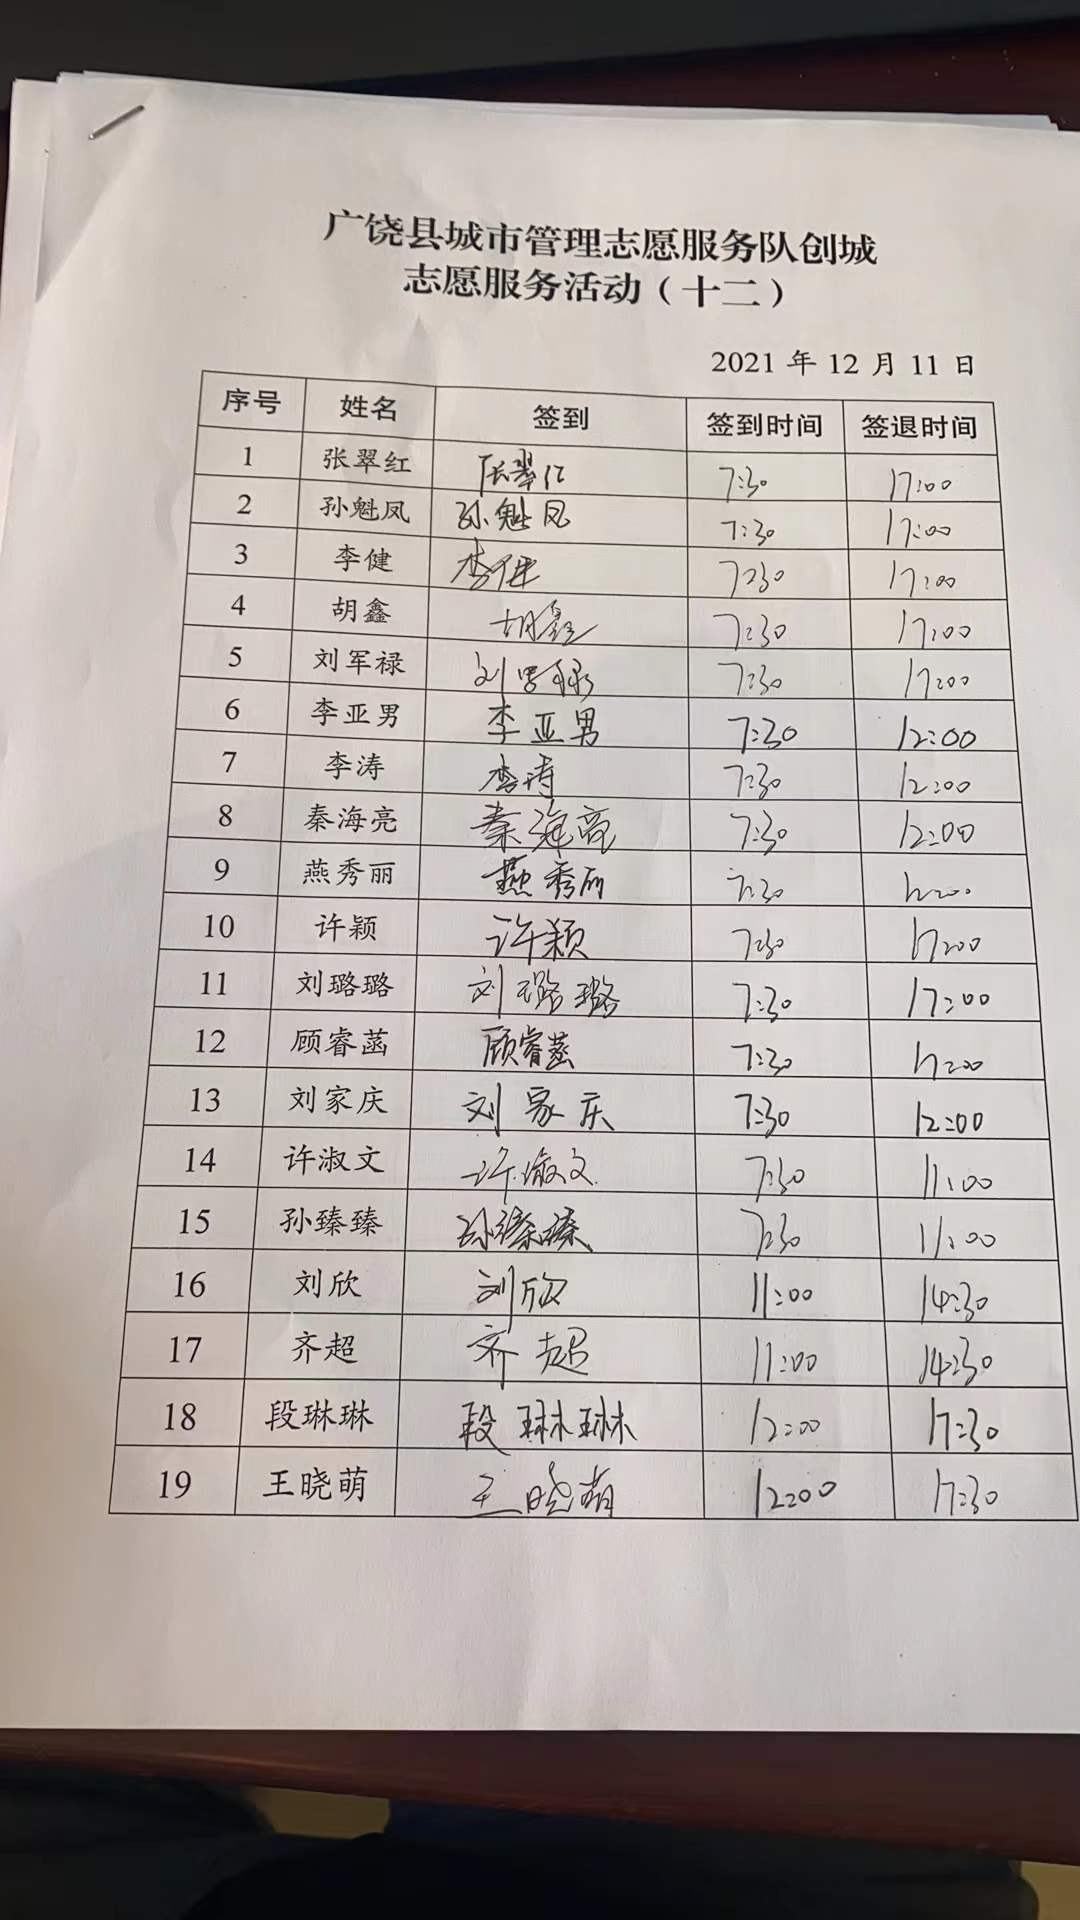 广饶县城市管理志愿服务队创城
志愿服务活动（十二）
2021 年 12 月 11 日
序号 姓名 签到 签到时间 签退时间
1 张翠红 张翠红 7:30 17:00
2 孙魁凤 孙魁凤 7:30 17:00
3 李健 李健 7:30 17:00
4 胡鑫 胡鑫 7:30 17:00
5 刘军禄 刘军禄 7:30 17:00
6 李亚男 李亚男 7:30 12:00
7 李涛 李涛 7:30 12:00
8 秦海亮 秦海亮 7:30 12:00
9 燕秀丽 燕秀丽 7:30
10 许颖 许颖 7:30 17:00
11 刘璐璐 刘璐璐 7:30 17:00
12 顾睿菡 顾睿菡 7:30
13 刘家庆 刘家庆 7:30 12:00
14 许淑文 许淑文 7:30 11:00
15 孙臻臻 孙臻臻 7:30 11:00
16 刘欣 刘欣 11:00 14:30
17 齐超 齐超 11:00 14:30
18 段琳琳 段琳琳 12:00 17:30
19 王晓萌 王晓萌 12:00 17:30